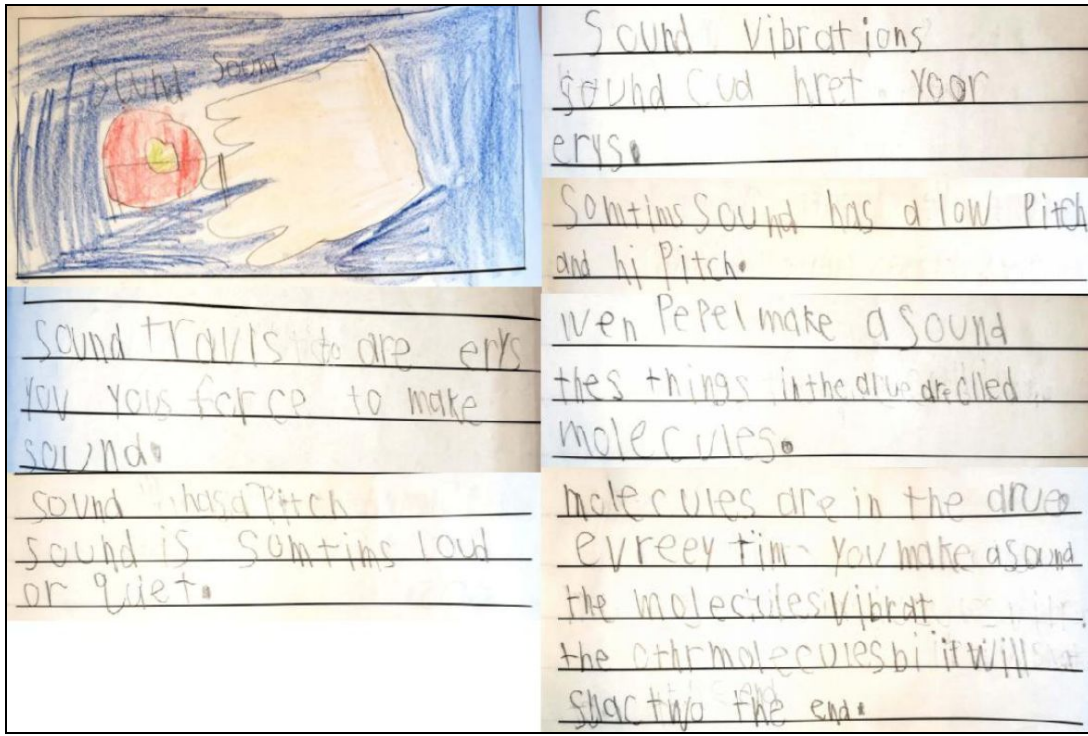 Sound Sound
Sound travls to are erys
you yous force to make
sound.
sound has a Pitch
sound is somtims loud
or quiet.
Sound Vibrations
sound cud hret yoor
erys.
Somtims Sound has a low Pitch
and hi Pitch.
wen PePel make a sound
thes things in the arue are clled
molecules.
molecules are in the arue.
evreey tim you make a sound
the molecules vibrat
the othr molecules bi it will
two the end.